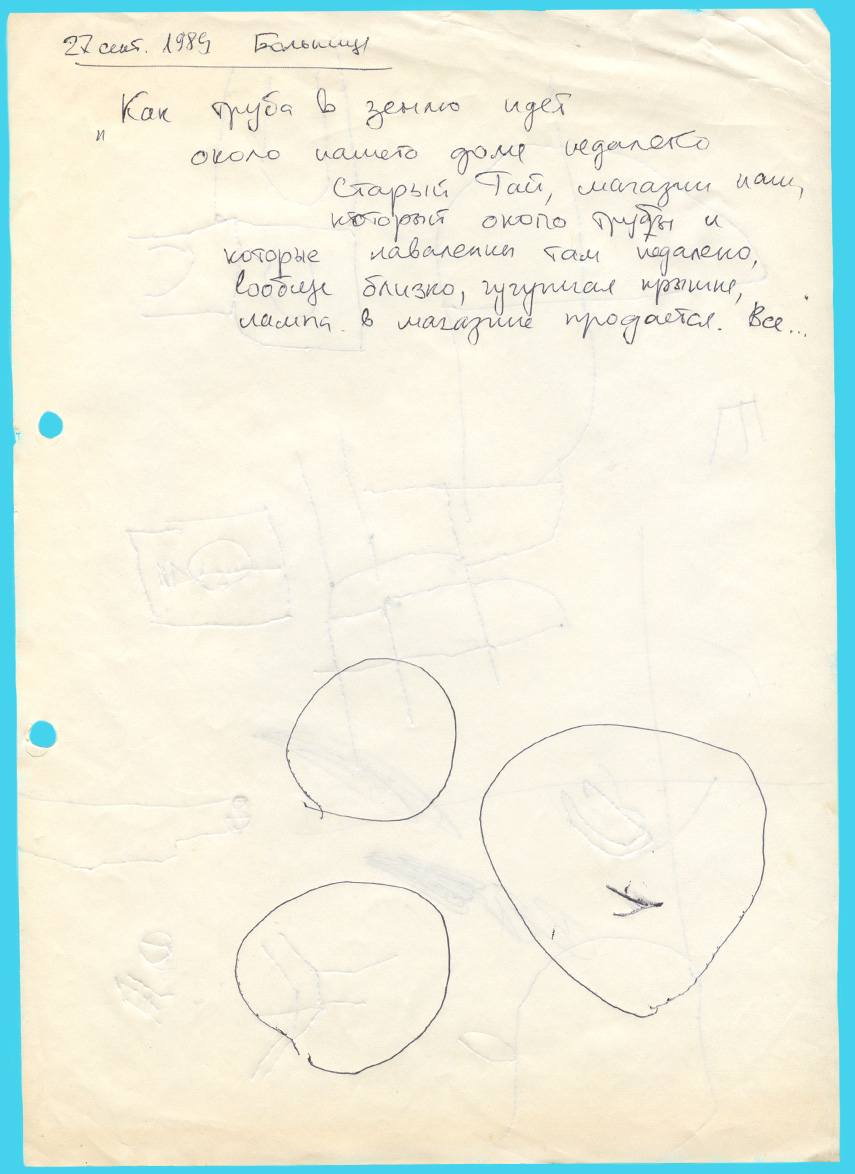 27 сент. 1989 Больница
"Как труба в землю идет
около нашего дома недалеко
Старый Гай, магазин наш,
который около трубы и
которые навалены там недалеко,
вообще близко, чугунная крышка,
лампа. в магазине продается. Все...